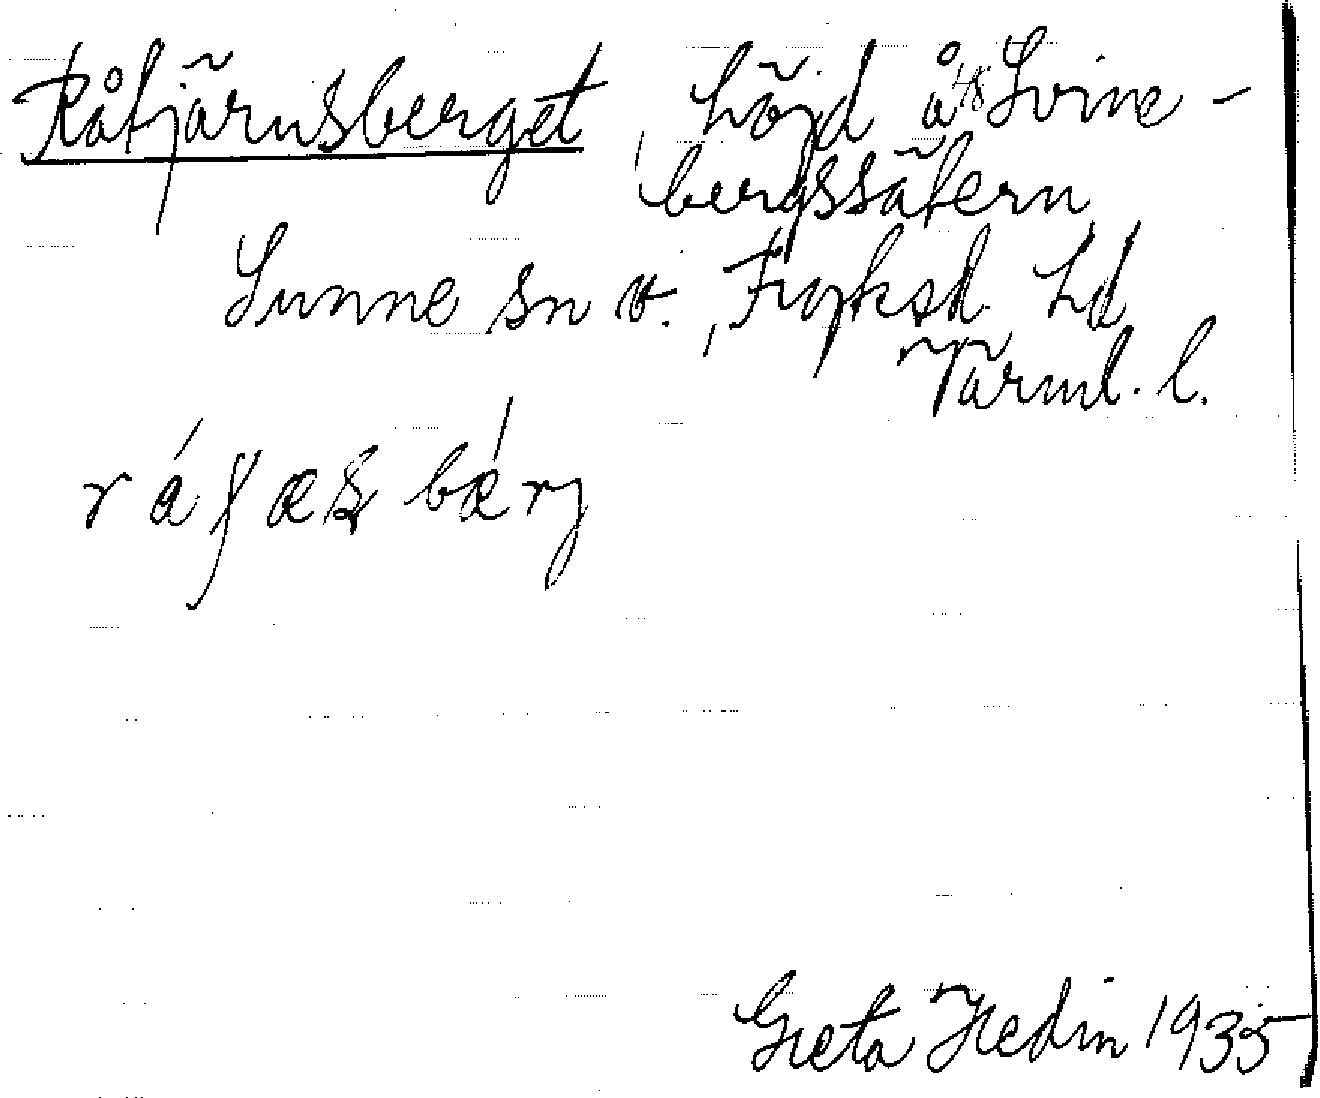 Råtjärnsberget höjd å 48 Svine-
bergssätern
Sunne sn v. Fryksd. hd
Värml. l.
Greta Hedin 1935